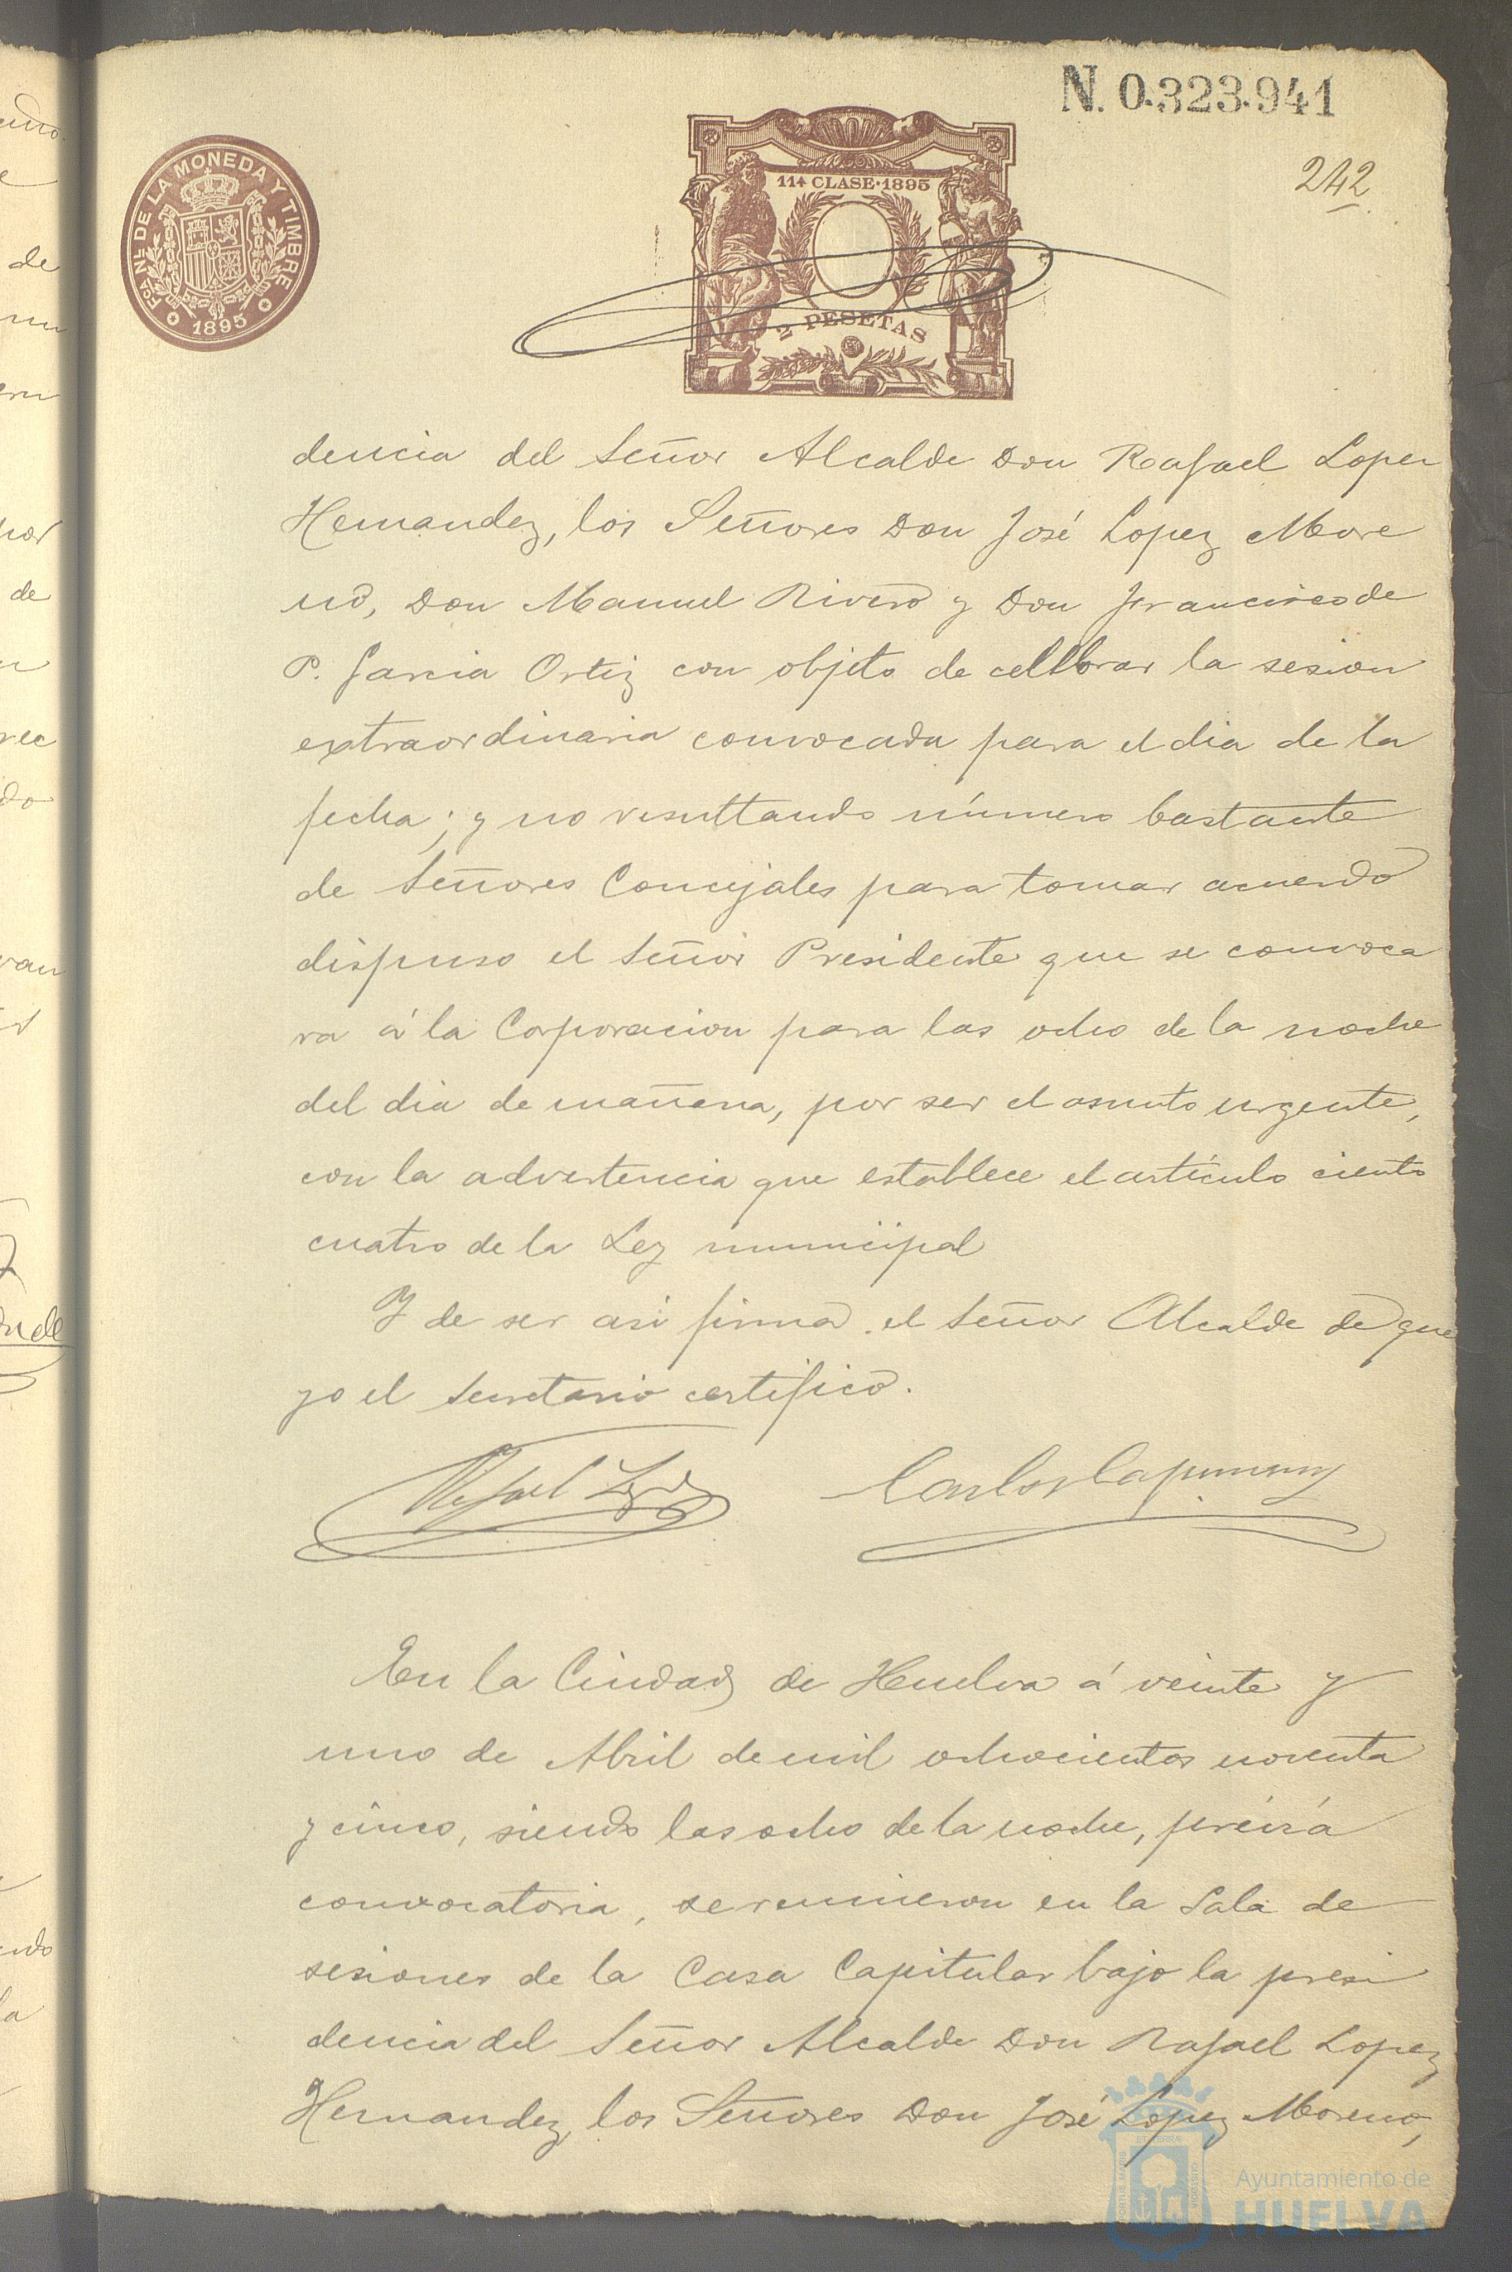 N. 0.323.941
242
FCA NL DE LA MONEDA Y TIMBRE
1895
11ª CLASE·1895
2 PESETAS
dencia del Señor Alcalde Don Rafael Lopez
Hernandez, los Señores Don José Lopez More
no, Don Manuel Rivero y Don Francisco de
P. Garcia Ortiz con objeto de cellbrar la sesion
extraordinaria convocada para el dia de la
fecha; y no resultando número bastante
de Señores Concejales para tomar acuerdo
dispuso el Señor Presidente que se convoca
ra á la Corporacion para las ocho de la noche
del dia de mañana, por ser el asunto urgente,
con la advertencia que establece el artículo ciento
cuatro de la Ley municipal
Y de ser asi firma el Señor Alcalde de que
yo el Secretario certifico.
Rafael Carlos
En la Ciudad de Huelva á veinte y
uno de Abril de mil ochocientos noventa
y cinco, siendo las ocho de la noche, prévia
convocatoria, se reunieron en la Sala de
sesiones de la Casa Capitular bajo la presi
dencia del Señor Alcalde Don Rafael Lopez
Hernandez, los Señores Don José Lopez Moreno,
Ayuntamiento de
HUELVA